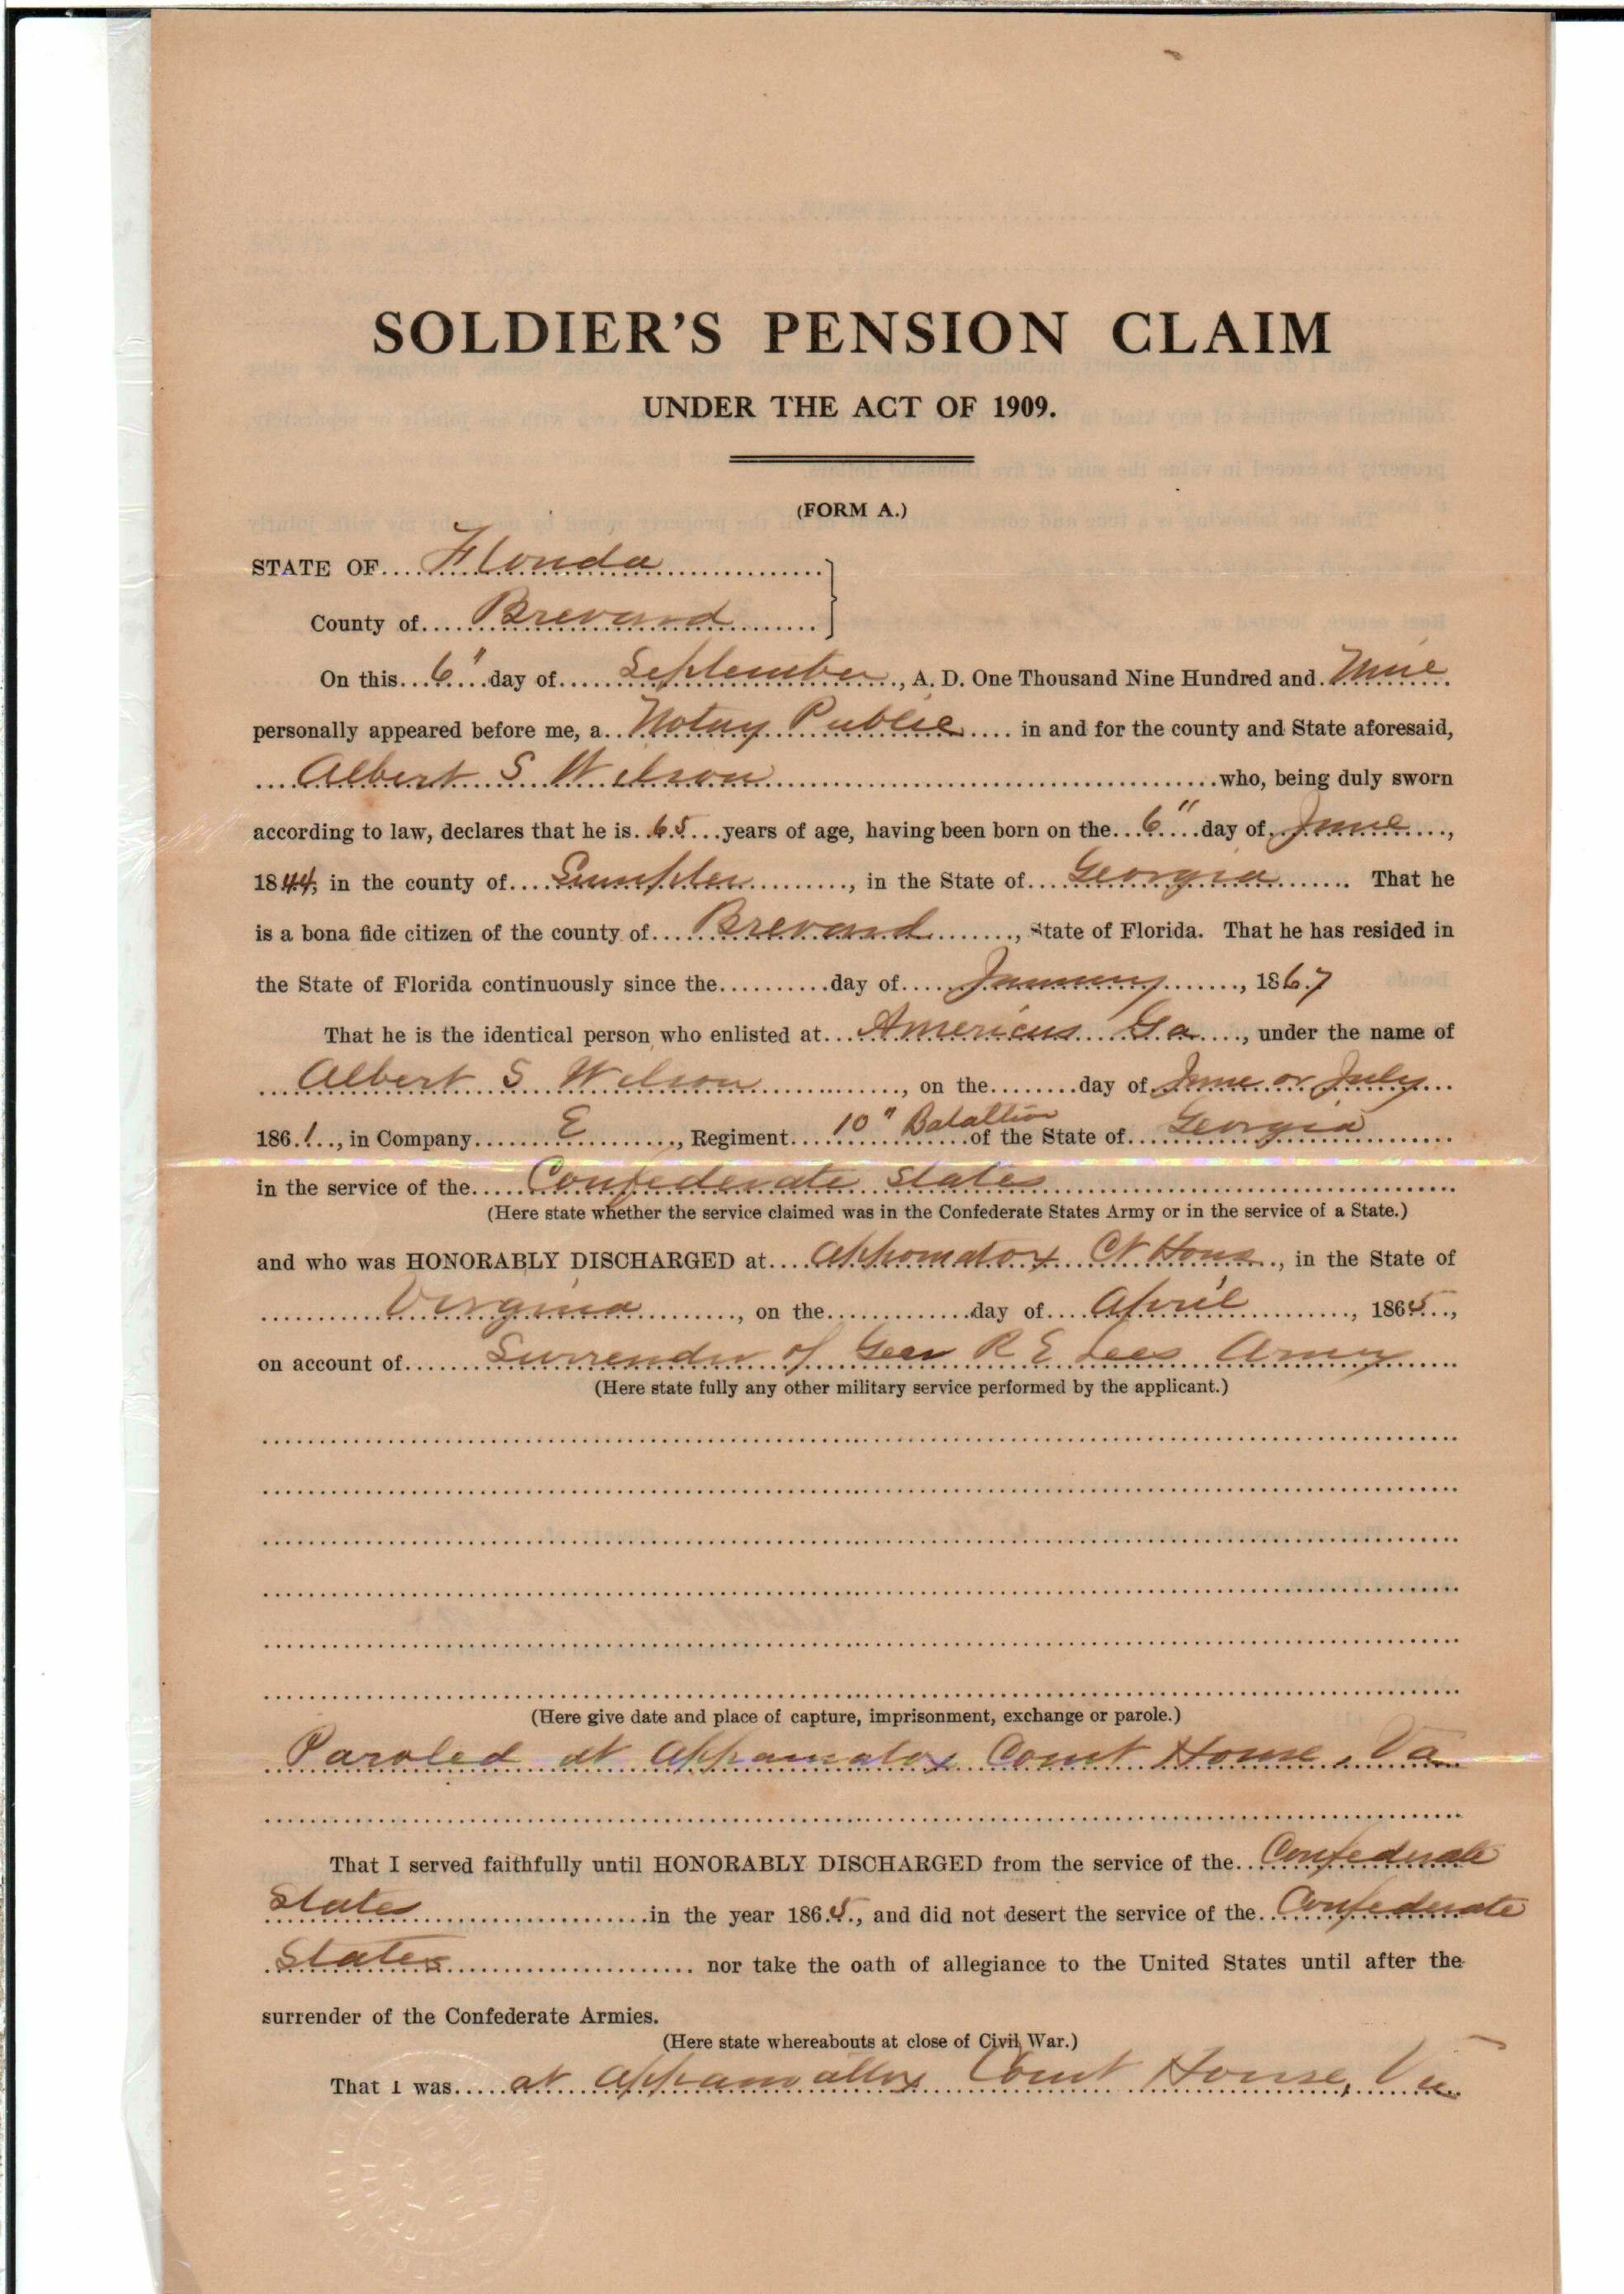 SOLDIER'S PENSION CLAIM
UNDER THE ACT OF 1909.
(FORM A.)
STATE OF....Florida
County of....Brevard
On this...6"...day of....September...., A. D. One Thousand Nine Hundred and.Nine.
personally appeared before me, a..Notary Public.... in and for the county and State aforesaid,
...Albert S Wilson....who, being duly sworn
according to law, declares that he is..65...years of age, having been born on the...6"...day of..June....,
1844, in the county of....Sumpter...., in the State of....Georgia.... That he
is a bona fide citizen of the county of....Brevard...., State of Florida. That he has resided in
the State of Florida continuously since the..........day of....January...., 1867
That he is the identical person who enlisted at...Americus Ga...., under the name of
...Albert S Wilson...., on the........day of June or July...
186.1.., in Company....E...., Regiment....10" Batallion....of the State of....Georgia....
in the service of the....Confederate States....
(Here state whether the service claimed was in the Confederate States Army or in the service of a State.)
and who was HONORABLY DISCHARGED at....Appomatox Ct House.., in the State of
....Virginia...., on the..............day of....April...., 1865..,
on account of....Surrender of Gen R E Lees Army....
(Here state fully any other military service performed by the applicant.)
(Here give date and place of capture, imprisonment, exchange or parole.)
Paroled at Appamatox Court House, Va
That I served faithfully until HONORABLY DISCHARGED from the service of the..Confederate
States....in the year 186.5., and did not desert the service of the..Confederate
States.... nor take the oath of allegiance to the United States until after the
surrender of the Confederate Armies.
(Here state whereabouts at close of Civil War.)
That I was....at Appamattox Court House, Va.